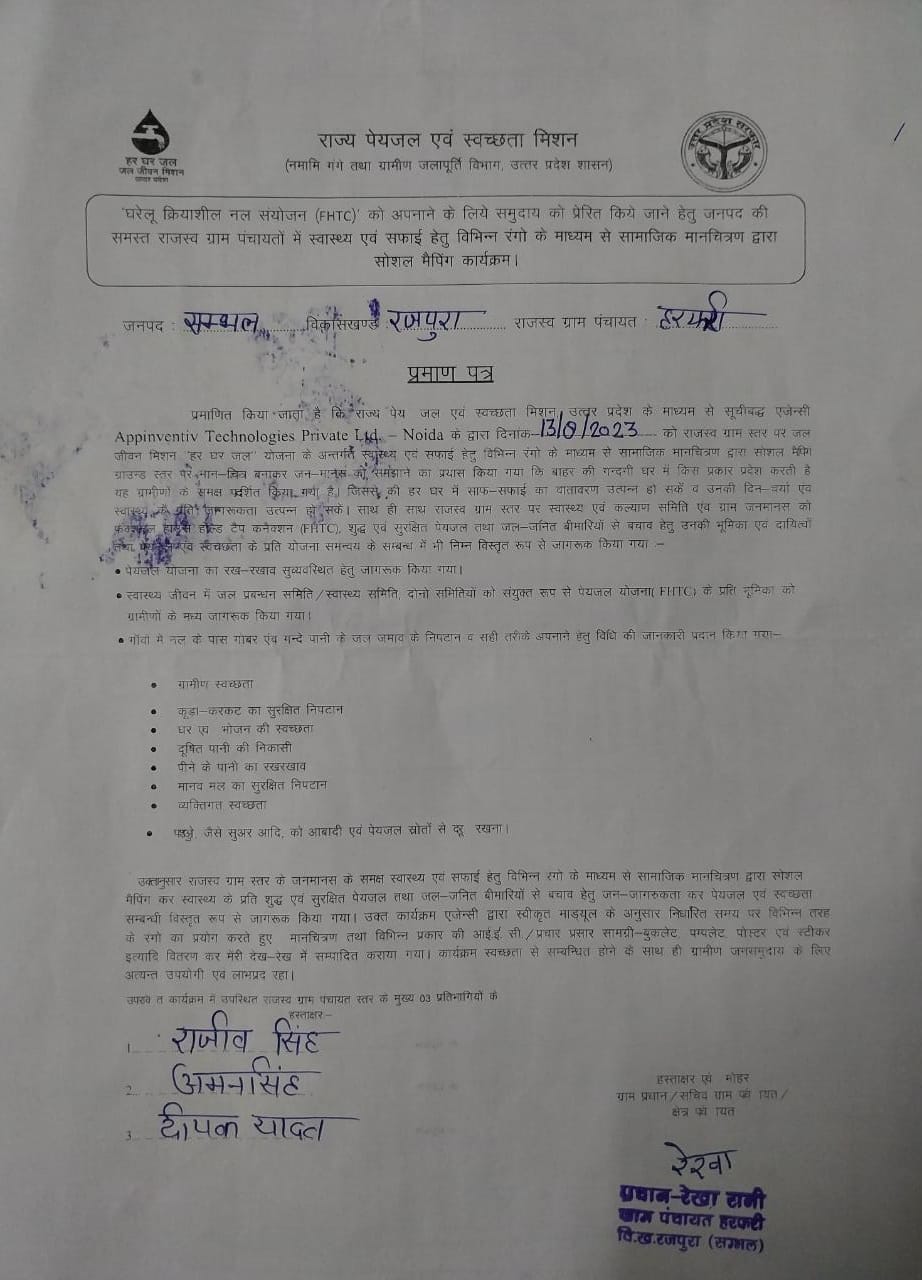 हर घर जल
जल जीवन मिशन
उत्तर प्रदेश
उत्तर प्रदेश सरकार
राज्य पेयजल एवं स्वच्छता मिशन
(नमामि गंगे तथा ग्रामीण जलापूर्ति विभाग, उत्तर प्रदेश शासन)
'घरेलू क्रियाशील नल संयोजन (FHTC)' को अपनाने के लिये समुदाय को प्रेरित किये जाने हेतु जनपद की
समस्त राजस्व ग्राम पंचायतों में स्वास्थ्य एवं सफाई हेतु विभिन्न रंगो के माध्यम से सामाजिक मानचित्रण द्वारा
सोशल मैपिंग कार्यक्रम।
जनपद : सम्भल विकासखण्ड रजपुरा राजस्व ग्राम पंचायत : हरफरी
प्रमाण पत्र
प्रमाणित किया जाता है कि राज्य पेय जल एवं स्वच्छता मिशन, उत्तर प्रदेश के माध्यम से सूचीबद्ध एजेन्सी
Appinventiv Technologies Private Ltd. – Noida के द्वारा दिनांक–13/8/2023 को राजस्व ग्राम स्तर पर जल
जीवन मिशन "हर घर जल" योजना के अन्तर्गत स्वास्थ्य एवं सफाई हेतु विभिन्न रंगो के माध्यम से सामाजिक मानचित्रण द्वारा सोशल मैपिंग
ग्राउन्ड स्तर पर मान–चित्र बनाकर जन–मानस को समझाने का प्रयास किया गया कि बाहर की गन्दगी घर में किस प्रकार प्रदेश करती है
यह ग्रामीणों के समक्ष प्रदर्शित किया गया है। जिससे की हर घर में साफ–सफाई का वातावरण उत्पन्न हो सकें व उनकी दिन–चर्या एंव
स्वास्थ्य के प्रति जागरूकता उत्पन्न हो सके। साथ ही साथ राजस्व ग्राम स्तर पर स्वास्थ्य एवं कल्याण समिति एंव ग्राम जनमानस को
फंक्शनल हाउस होल्ड टैप कनेक्शन (FHTC), शुद्ध एवं सुरक्षित पेयजल तथा जल–जनित बीमारियों से बचाव हेतु उनकी भूमिका एवं दायित्वों
तथा एंव स्वच्छता के प्रति योजना समन्वय के सम्बन्ध में भी निम्न विस्तृत रूप से जागरूक किया गया :–
• पेयजल योजना का रख–रखाव सुव्यवस्थित हेतु जागरूक किया गया।
• स्वास्थ्य जीवन में जल प्रबन्धन समिति/स्वास्थ्य समिति, दोनो समितियों को संयुक्त रूप से पेयजल योजना( FHTC) के प्रति भूमिका को
ग्रामीणों के मध्य जागरूक किया गया।
• गाँवों में नल के पास गोबर एंव गन्दे पानी के जल जमाव के निपटान व सही तरीके अपनाने हेतु विधि की जानकारी प्रदान किया गया–
• ग्रामीण स्वच्छता
• कूड़ा–करकट का सुरक्षित निपटान
• घर एंव भोजन की स्वच्छता
• दूषित पानी की निकासी
• पीने के पानी का रखरखाव
• मानव मल का सुरक्षित निपटान
• व्यक्तिगत स्वच्छता
• जैसे सुअर आदि, को आबादी एवं पेयजल स्रोतों से दूर रखना।
उक्तानुसार राजस्व ग्राम स्तर के जनमानस के समक्ष स्वास्थ्य एवं सफाई हेतु विभिन्न रंगो के माध्यम से सामाजिक मानचित्रण द्वारा सोशल
मैपिंग कर स्वास्थ्य के प्रति शुद्ध एवं सुरक्षित पेयजल तथा जल–जनित बीमारियों से बचाव हेतु जन–जागरुकता कर पेयजल एवं स्वच्छता
सम्बन्धी विस्तृत रूप से जागरूक किया गया। उक्त कार्यक्रम एजेन्सी द्वारा स्वीकृत माड्यूल के अनुसार निर्धारित समय पर विभिन्न तरह
के रंगो का प्रयोग करते हुए मानचित्रण तथा विभिन्न प्रकार की आई.ई.सी./प्रचार प्रसार सामग्री–बुकलेट, पम्पलेट, पोस्टर एवं स्टीकर
इत्यादि वितरण कर मेरी देख–रेख में सम्पादित कराया गया। कार्यक्रम स्वच्छता से सम्बन्धित होने के साथ ही ग्रामीण जनसमुदाय के लिए
अत्यन्त उपयोगी एवं लाभप्रद रहा।
कार्यक्रम में उपस्थित राजस्व ग्राम पंचायत स्तर के मुख्य 03 प्रतिभागियों के
हस्ताक्षर:–
1. राजीव सिंह
2. अमनसिंह
3. दीपक यादव
हस्ताक्षर एवं मोहर
ग्राम प्रधान/सचिव ग्राम पंचायत/
क्षेत्र पंचायत
रेखा
प्रधान–रेखा रानी
ग्राम पंचायत हरफरी
वि.ख.रजपुरा (सम्भल)